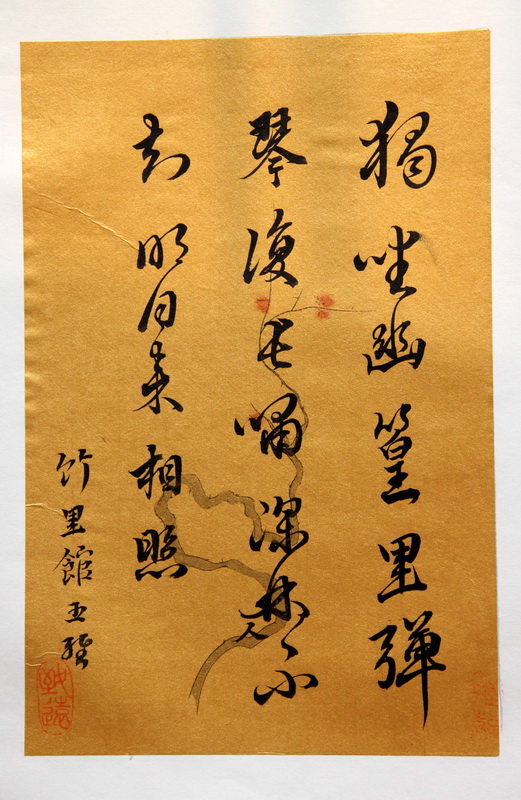 獨坐幽篁里彈
琴復長嘯深林人不
知明月來相照
竹里館 王維
致遠